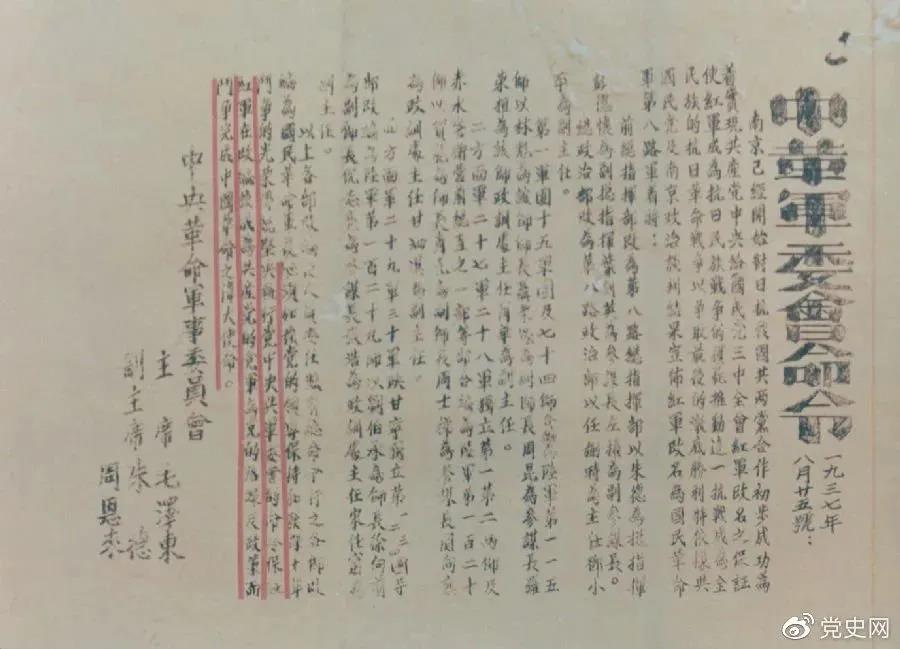 中革軍委會命令
一九三七年
八月廿五號：
南京已經開始對日抗戰國共兩黨合作初步成功為
着實現共產党中央給國民党三中全曾紅軍改名之保証
使紅軍成為抗日民族戰爭的模範推動這一抗戰成為全
民族的抗日革命戰爭以爭取最後的澈底勝利特依據共
國民党及南京政治談判結果宣佈紅軍改名為國民革命
軍第八路軍着將：
前總指揮部改為第八路總指揮部以朱德為總指揮
彭德懷為副總指揮葉劍英為參謀長左權為副參謀長。
總政治部改為第八路政治部以任弼時為主任鄧小
平為副主任。
第一軍團十五軍團及七十四師合編為陸軍第一一五
師以林彪為該師師長聶榮臻為副師長周昆為參謀長羅
榮桓為該師政訓處主任蕭華為副主任。
二方面軍二十七軍二十八軍獨立第一第二兩師及
赤水警衛營前總直之一部等部合編為陸軍第一百二十
師以賀龍為師長蕭克為副師長周士第為參謀長關向應
為政訓處主任甘泗淇為副主任。
四方面軍二十九軍三十軍陝甘寧獨立第一二三四等
師改編為陸軍第一百二十九師以劉伯承為師長徐向前
為副師長倪志亮為參謀長張浩為政訓處主任宋任窮為
副主任。
以上各部改編後人員委任照前總命令行之各師改
編為國民革命軍後必須加強党的領導保持和發揮十年
鬥爭的光榮傳統堅決執行党中央與軍委會的命令保證
紅軍在改編後成為共產党的党軍為党的路線及政策而
鬥爭完成中國革命之偉大使命。
中央革命軍事委員會
主席毛澤東
副主席朱德
周恩來
党史网